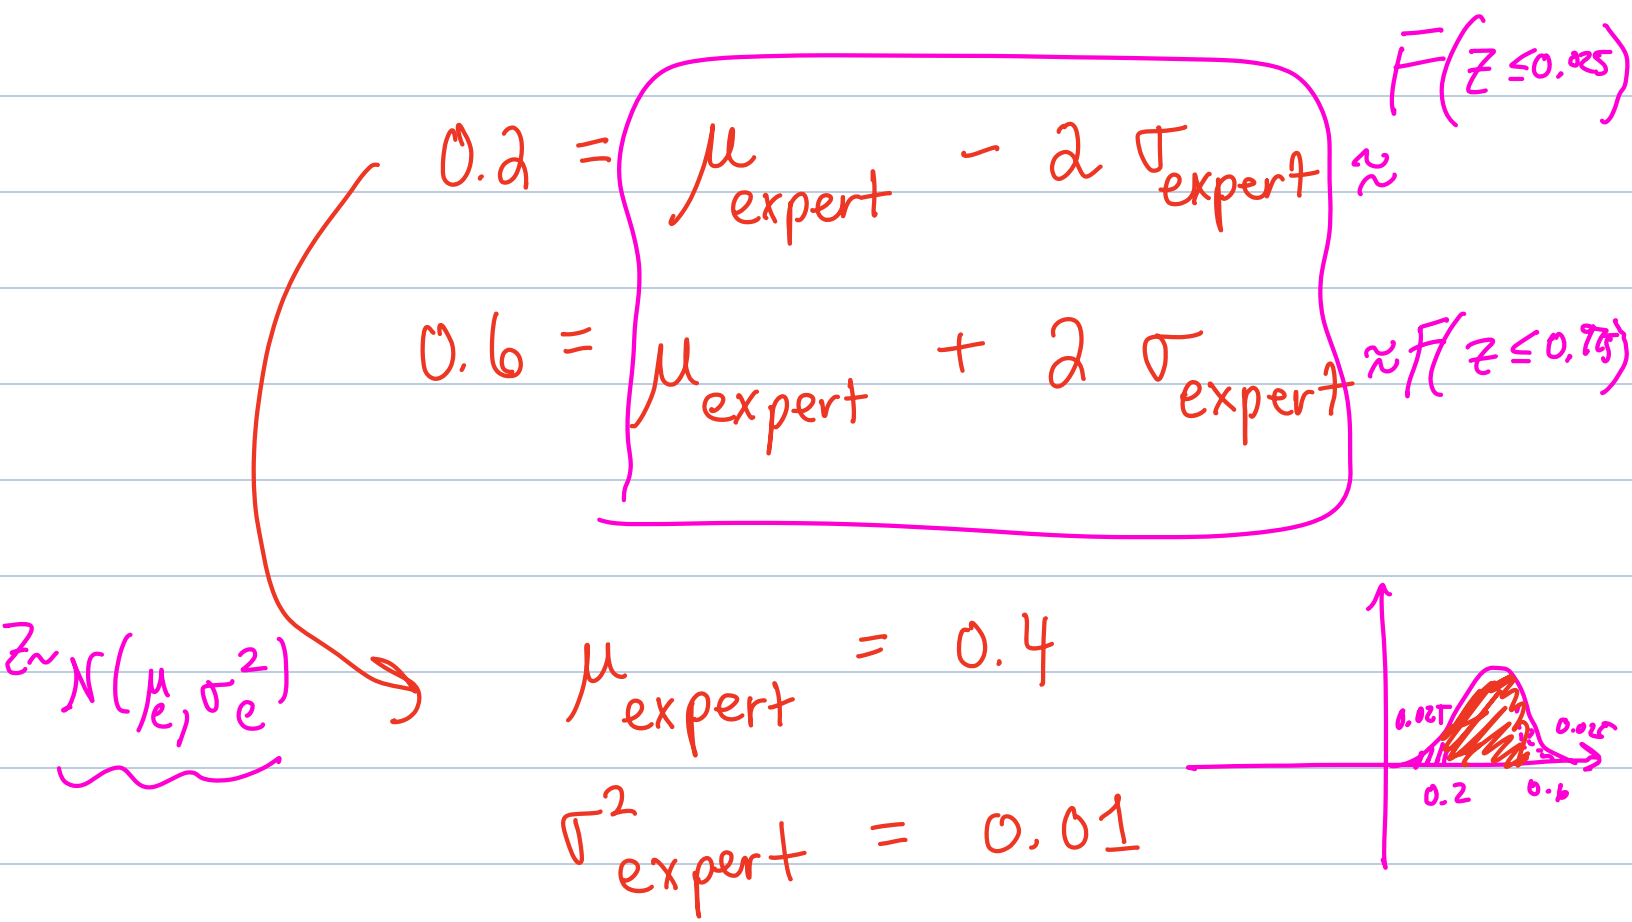 F(Z ≤ 0.025)
0.2 = μ_expert - 2 σ_expert ≈
0.6 = μ_expert + 2 σ_expert ≈ F(Z ≤ 0.975)
Z ~ N(μ_e, σ_e²)
μ_expert = 0.4
σ²_expert = 0.01
0.025 0.025
0.2 0.6